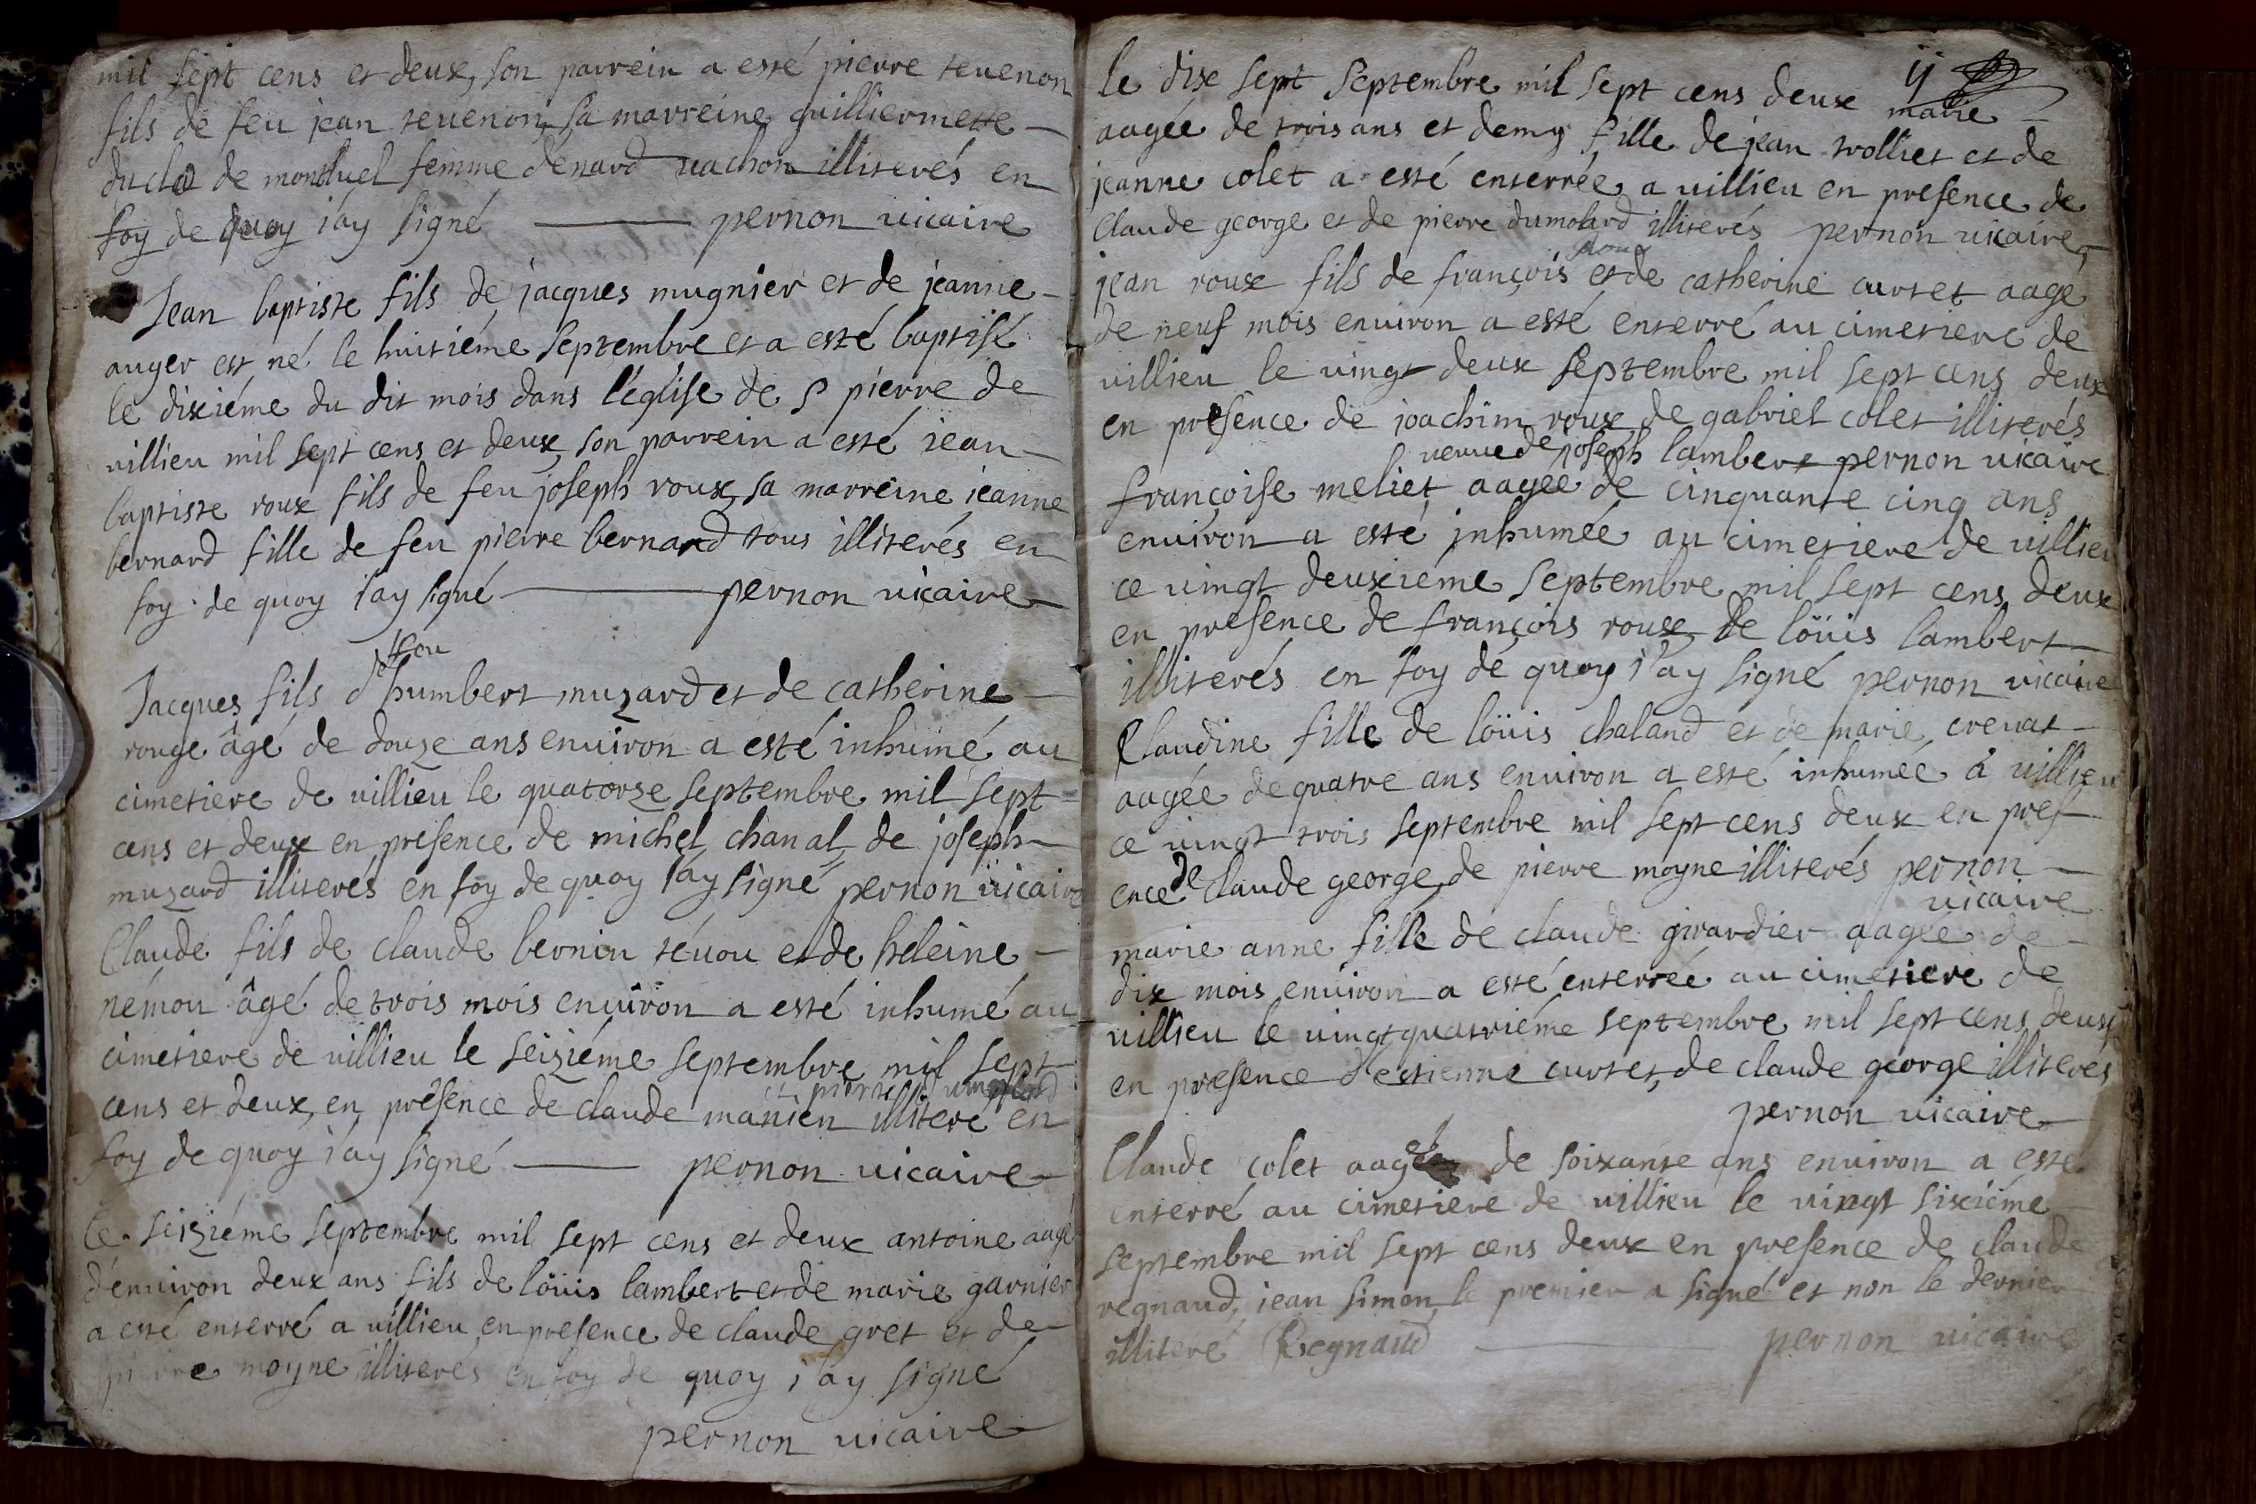 mil sept cens et deux, son parrein a esté pierre tevenon
fils de feu jean tevenon, sa marreine guilliermette
du clos de montluel femme denard vachon illiterés en
foy de quoy i'ay signé pernon vicaire
Jean baptiste fils de jacques mugnier et de jeanne
auger est né le huitiéme septembre et a esté baptisé
le dixiéme du dit mois dans l'église de S pierre de
villieu mil sept cens et deux, son parrein a esté iean
baptiste roux fils de feu joseph roux, sa marreine ieanne
bernard fille de feu pierre bernard tous illiterés en
foy de quoy i'ay signé pernon vicaire
feu
Jacques fils de humbert muzard et de catherine
rouge âgé de douze ans environ a esté inhumé au
cimetiere de villieu le quatorze septembre mil sept
cens et deux en présence de michel chanal, de joseph
muzard illiterés en foy de quoy i'ay signé pernon vicaire
Claude fils de claude bernin tévou et de heleine
némou âgé de trois mois environ a esté inhumé au
cimetiere de villieu le seiziéme septembre mil sept
et pierre
cens et deux, en présence de claude manien illiteré en
foy de quoy i'ay signé pernon vicaire
le seiziéme septembre mil sept cens et deux antoine aagé
d'environ deux ans fils de löuis lambert et de marie garnier
a esté enterré a villieu en presence de claude gret et de
pierre moyne illiterés en foy de quoy i'ay signé
pernon vicaire
ij
le dix sept septembre mil sept cens deux marie
aagée de trois ans et demy fille de jean trolliet et de
jeanne colet a esté enterrée a villieu en presence de
Claude george et de pierre dumolard illiterés pernon vicaire
roux
jean roux fils de françois et de catherine curtet aagé
de neuf mois environ a esté enterré au cimetiere de
villieu le vingt deux septembre mil sept cens deux
en présence de joachim roux, de gabriel colet illiterés
veuve de joseph lambert pernon vicaire
françoise meliet aagée de cinquante cinq ans
environ a esté inhumée au cimetiere de villieu
ce vingt deuxiéme septembre mil sept cens deux
en presence de françois roux, de löuis lambert
illiterés en foy de quoy i'ay signé pernon vicaire
Claudine fille de löuis chaland et de marie crevat
aagée de quatre ans environ a esté inhumée à villieu
ce vingt trois septembre mil sept cens deux en pres
ence de Claude george, de pierre moyne illiterés pernon
vicaire
marie anne fille de claude girardier aagée de
dix mois environ a esté enterrée au cimetiere de
villieu le vingt quatriéme septembre mil sept cens deux
en presence d'estienne curtet, de claude george illiterés
pernon vicaire
Claude colet aagé de soixante ans environ a esté
enterré au cimetiere de villieu le vingt sixiéme
septembre mil sept cens deux en presence de claude
regnaud, jean simon, le premier a signé et non le dernier
illiteré Regnaud pernon vicaire